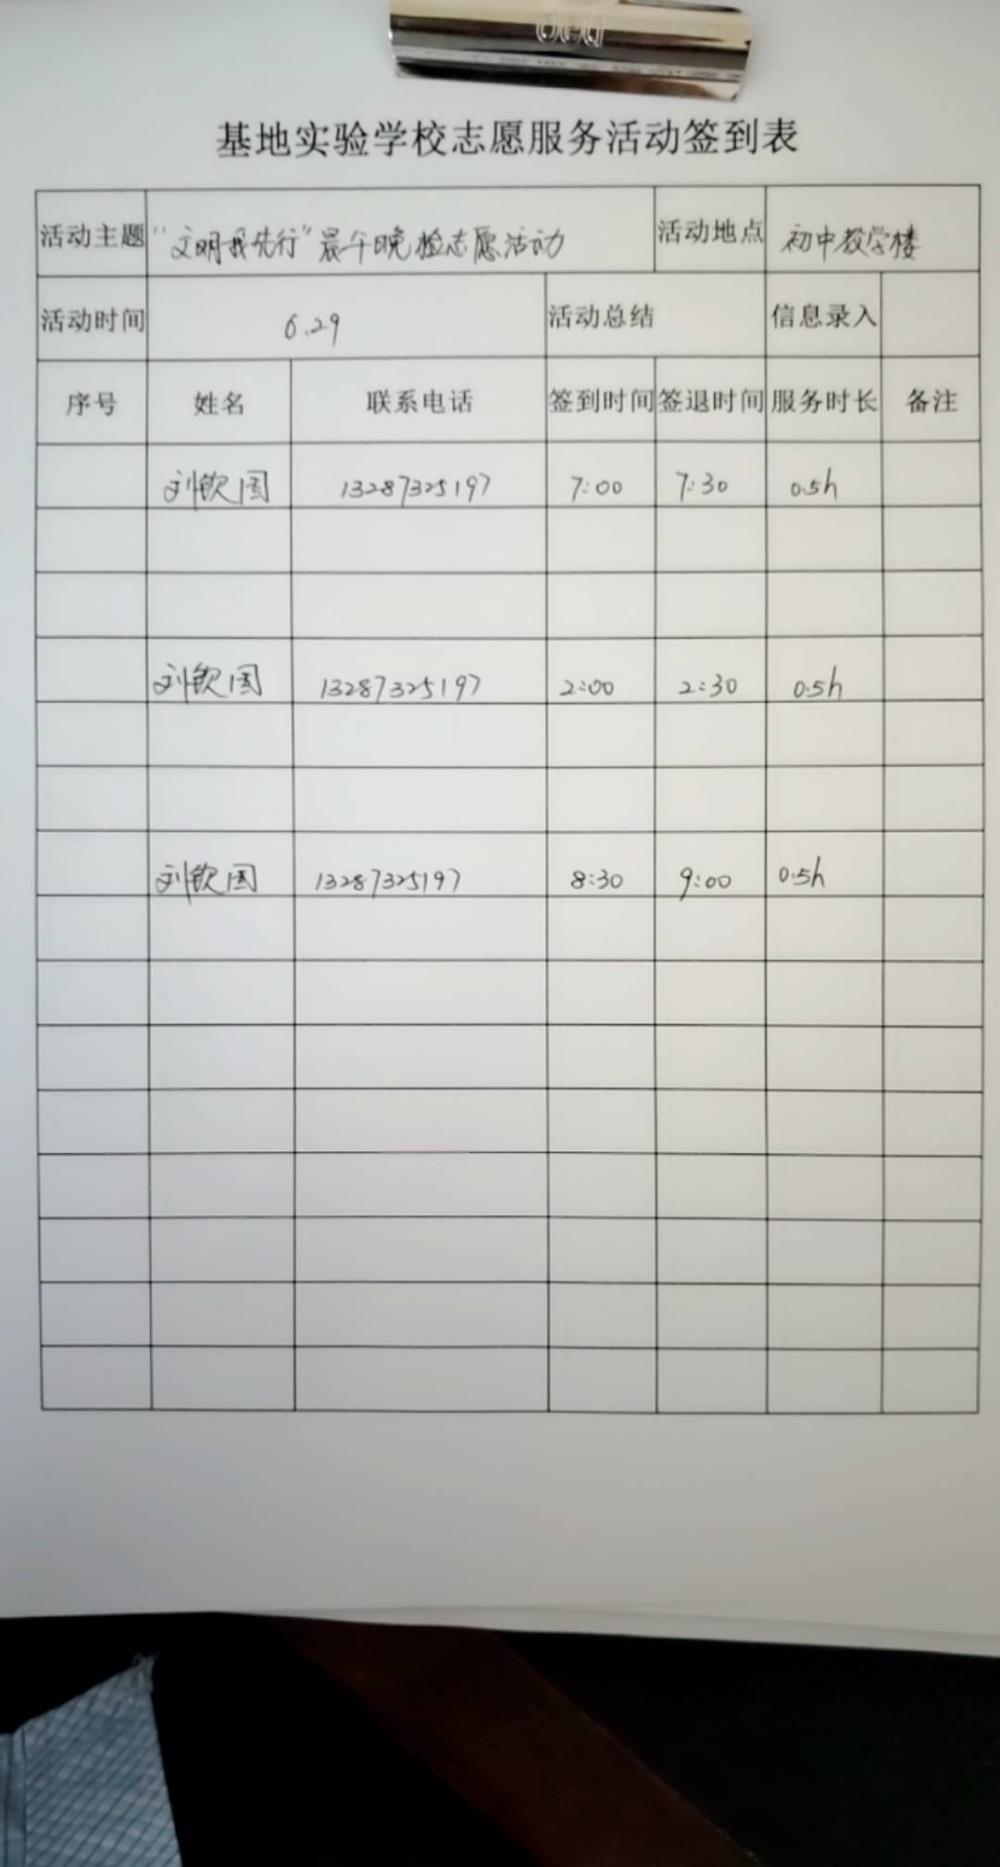 基地实验学校志愿服务活动签到表
活动主题 “文明我先行”晨午晚检志愿活动 活动地点 初中教学楼
活动时间 6.29 活动总结 信息录入
序号 姓名 联系电话 签到时间 签退时间 服务时长 备注
刘钦国 13287325197 7:00 7:30 0.5h
刘钦国 13287325197 2:00 2:30 0.5h
刘钦国 13287325197 8:30 9:00 0.5h